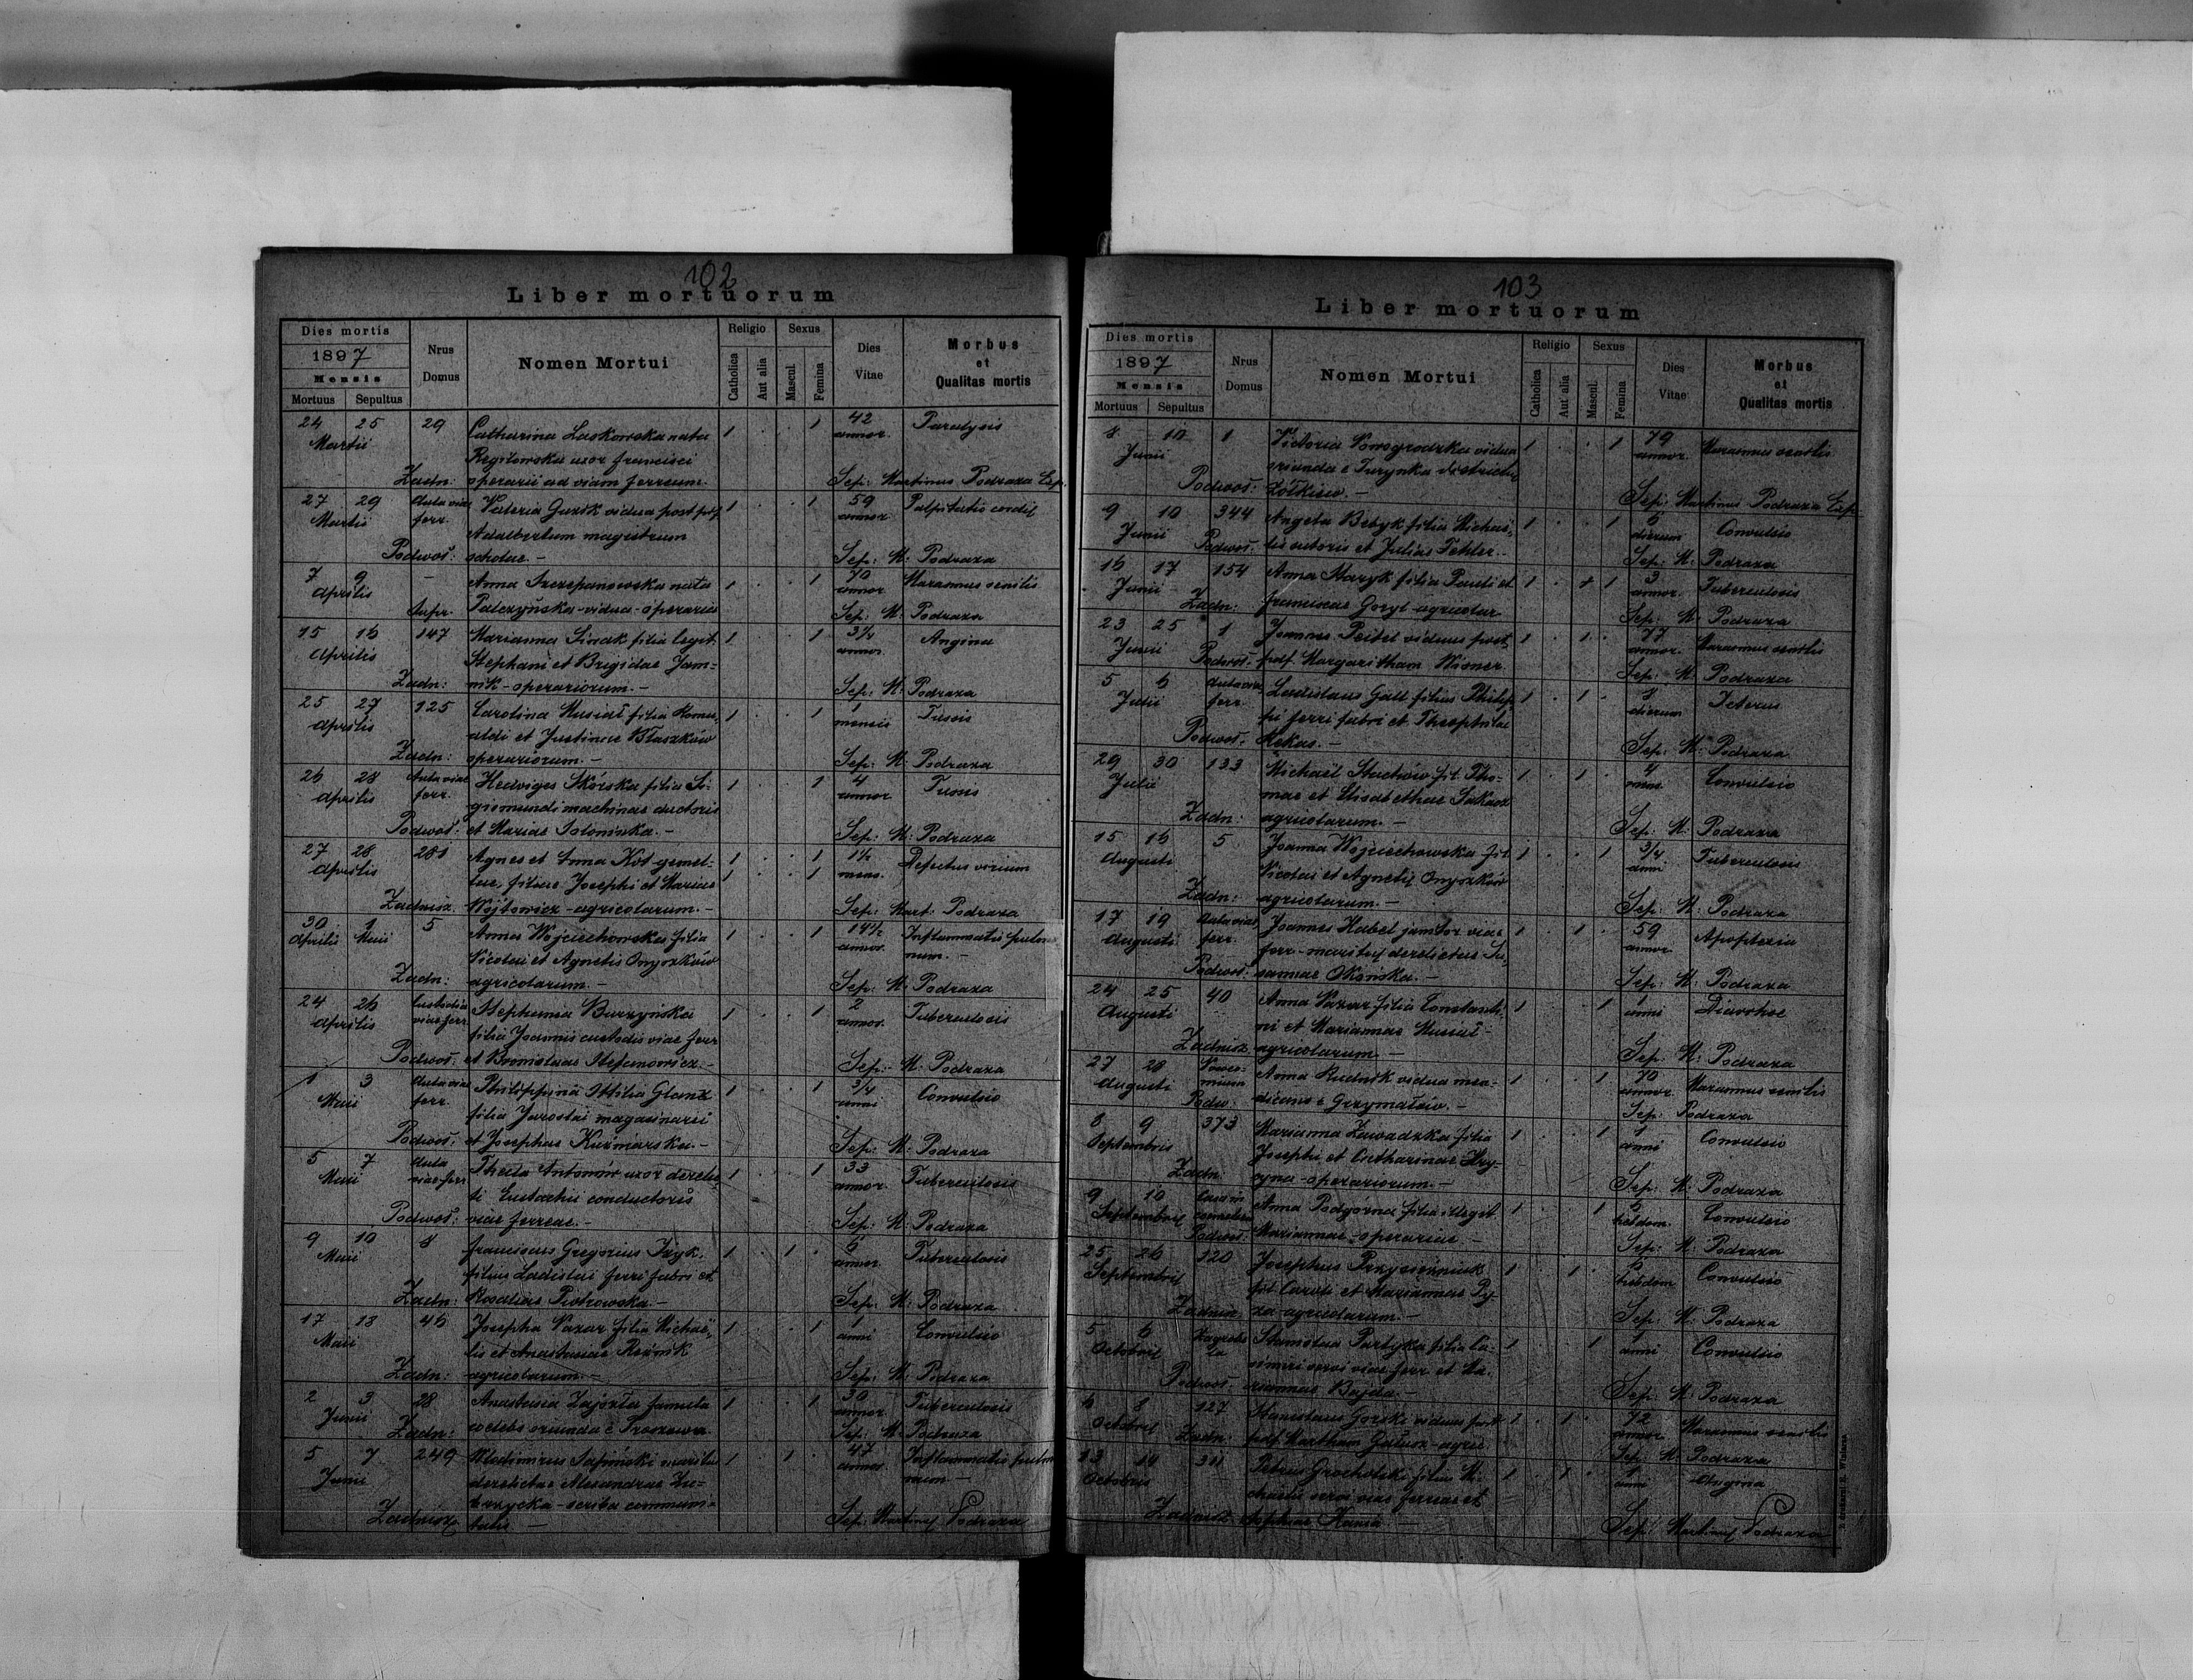 102
Liber mortuorum
Dies mortis
1897
Mensis
Mortuus Sepultus
Nrus Domus
Nomen Mortui
Religio
Catholica Aut alia
Sexus
Mascul. Femina
Dies Vitae
Morbus et Qualitas mortis
24 25 29 Catharina Laskowska nata 1 1 42 Paralysis
Martii annor.
uxor Francisci
Zadn: operarii ad viam ferream. Sep: Martinus Podraza Exp.
27 29 Aula viae Valeria Guzik vidua post 1 1 59 Palpitatio cordis
Martii ferr. Adalbertum magistrum annor.
Podwoł: scholae. - Sep: M: Podraza
7 9 - Anna Szczepanowska nata 1 1 70 Marasmus senilis
Aprilis Palczyńska - vidua - operaria annor.
Sep: M: Podraza
15 16 147 Marianna Siwak filia legit. 1 1 3½ Angina
Aprilis Stephani et Brigidae Jam= annor.
Zadn: nik - operariorum. - Sep: M: Podraza
25 27 125 Carolina Musiał filia Romu 1 1 1 Tussis
Aprilis aldi et Justinae Błaszków mensis
Zadn: operariorum. - Sep: M: Podraza
26 28 Aula viae Hedviges Skórska filia Si- 1 1 4 Tussis
Aprilis ferr. gismundi machinae ductoris annor.
Podwoł: et Mariae - Sep: M: Podraza
27 28 281 Agnes et Anna Kot gemel- 1 1 1½ Defectus virium
Aprilis lae, filiae Josephi et Mariae 1 1 mens.
Zadnisz. Wójtowicz - agricolarum. - Sep: Mart: Podraza
30 1 5 Anna Wojciechowska filia 1 1 14½ Inflammatio pulmo
Aprilis Maii Nicolai et Agnetis Onyszków annor. num. -
Zadn: agricolarum. - Sep: M: Podraza
24 26 Custodia Stephania Burzyńska 1 1 2 Tuberculosis
Aprilis viae ferr. filia Joannis custodis viae ferr annor.
Podwoł: et Bronislaae Stefanowicz. - Sep: M: Podraza
1 3 Aula viae Philippina Otilia Glanz 1 1 3/4 Convulsio
Maii ferr. filia magasinarii anni
Podwoł: et Josephae Kuźniarska. - Sep: M: Podraza
5 7 Aula Thecla Antonów uxor derelic 1 1 33 Tuberculosis
Maii viae ferr ti Eustachii conductoris annor.
Podwoł: viae ferreae. - Sep: M: Podraza
9 10 8 Franciscus Gregorius 1 1 6 Tuberculosis
Maii filius Ladislai ferri fabri et annor.
Zadn: Rosaliae Piotrowska. - Sep: M: Podraza
17 18 46 Josepha Nazar filia Michaë 1 1 1 Convulsio
Maii lis et Anastasiae Reźnik anni
Zadn: agricolarum. - Sep: M: Podraza
2 3 28 Anastasia famula 1 1 30 Tuberculosis
Junii coelebs oriunda e annor.
Zadn: Sep: M: Podraza
5 7 249 Wladimirus Sapiński maritus 1 1 47 Inflammatio pulmo
Junii derelictus Alexandrae annor. num -
Zadnisz. scriba communa=
lis - Sep: Martinus Podraza
103
Liber mortuorum
Dies mortis
1897
Mensis
Mortuus Sepultus
Nrus Domus
Nomen Mortui
Religio
Catholica Aut alia
Sexus
Mascul. Femina
Dies Vitae
Morbus et Qualitas mortis
8 10 1 Victoria Nowogrodzka vidua 1 1 79 Marasmus senilis
Junii oriunda e Turynka districtus annor.
Podwoł: Żółkiew. - Sep: Martinus Podraza Exp.
9 10 344 Angela Belyk filia Michaë 1 1 6 Convulsio
Junii lis sutoris et Juliae Fehler. dierum
Podwoł. Sep: M: Podraza
16 17 154 Anna Maryk filia Pauli et 1 1 3 Tuberculosis
Junii Franciscae Goryl agricolar annor.
Zadn: Sep: M: Podraza
23 25 1 Joannes Peitel viduus post 1 1 77 Marasmus senilis
Junii Podwoł: Margaritham Wisner annor.
Sep: M: Podraza
5 6 Aula viae Ladislaus Gall filius Philip 1 1 8 Icterus
Julii ferr. pi ferri fabri et Theophilae dierum
Podwoł. Rekas. - Sep: M: Podraza
29 30 133 Michaël Stachów fil. Tho= 1 1 4 Convulsio
Julii mae et Elisabethae Łukasz
Zadn: agricolarum. - Sep: M: Podraza
15 16 5 Joanna Wojciechowska fil 1 1 3/4 Tuberculosis
Augusti Nicolai et Agnetis Onyszków anni
Zadn: agricolarum. - Sep: M: Podraza
17 19 Aula viae Joannes Habel janitor viae 1 1 59 Apoplexia
Augusti ferr. ferr - maritus derelictus Su annor.
Podwoł: sannae Okońska. - Sep: M: Podraza
24 25 40 Anna Nazar filia Constanti 1 1 1 Diarrhoe
Augusti ni et Mariannae Musiał - anni
Zadnisz. agricolarum. - Sep: M: Podraza
27 28 Anna Rudnik vidua men- 1 1 70 Marasmus senilis
Augusti dicans e Grzymałów. - annor.
Podw. Sep: Podraza
8 9 373 Marianna Zawadzka filia 1 1 1 Convulsio
Septembris Josephi et Catharinae Hry- anni
Zadn: cyna - operariorum. - Sep: M: Podraza
9 10 Anna Podgórna filia illegit. 1 1 6 Convulsio
Septembris Mariannae - operariae. - hebdom.
Podwoł. Sep: M: Podraza
25 26 120 Josephus 1 1 6 Convulsio
Septembris fil. Caroli et Mariannae Py- hebdom
Zadnisz. za - agricolarum. - Sep: M: Podraza
5 6 Zagrobe Stanislaa Partyka filia Ca- 1 1 1 Convulsio
Octobris la simiri servi viae ferr et Ma- anni
Podwoł. riannae Bajda. - Sep: M: Podraza
6 8 127 Stanislaus Gorski viduus post 1 1 72 Marasmus senilis
Octobris Martham - agric annor.
Zadn: Sep: M: Podraza
13 14 311 Petrus Grocholski filius Mi- 1 1 1 Angina
Octobris chaelis servi viae ferreae et anni
Zadnisz. Sophiae Kania. Sep: Martinus Podraza
Z drukarni E. Winiarza.